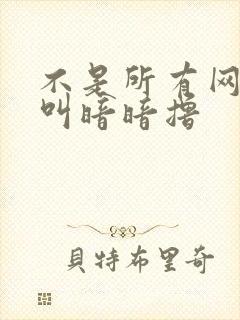 不是所有网
叫暗暗撸
貝特布里奇